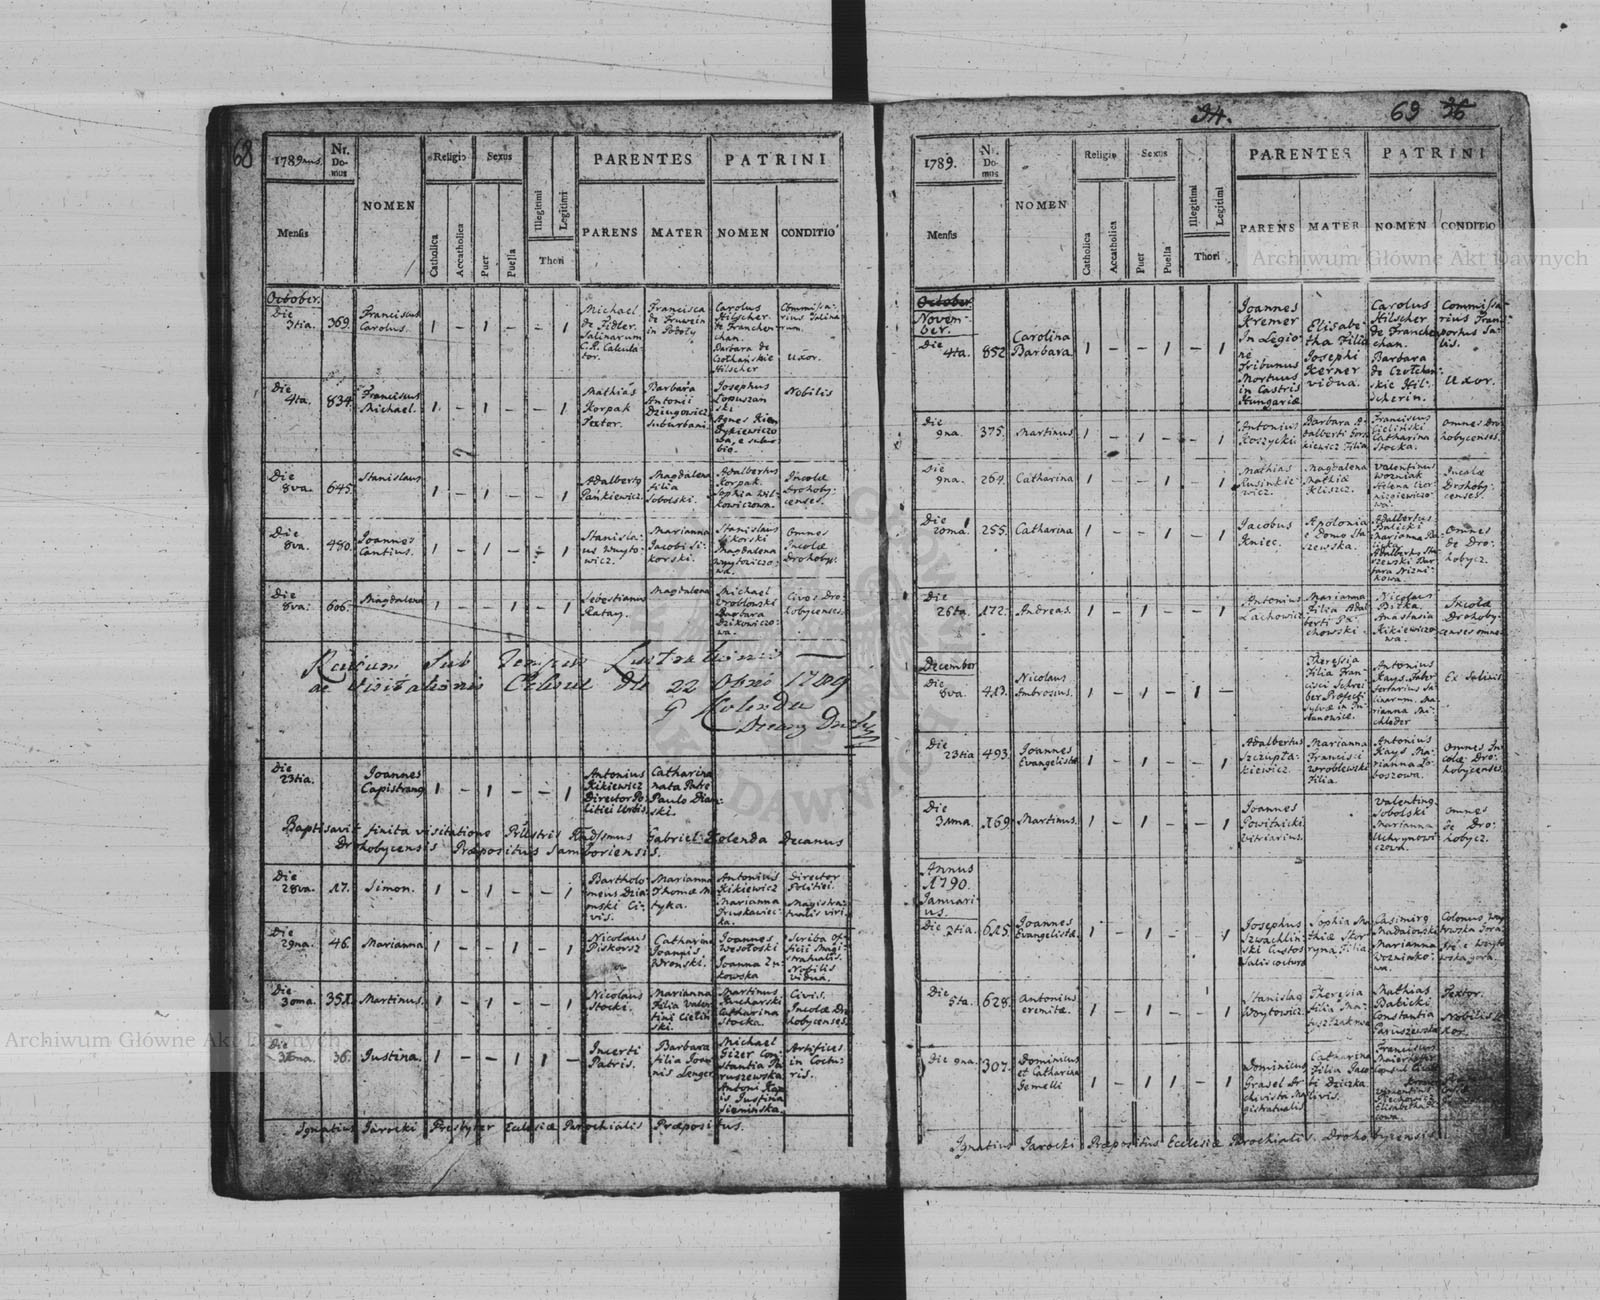 68
1789nus.
Nr. Domus
NOMEN
Religio
Sexus
PARENTES
PATRINI
Mensis
Catholica
Accatholica
Puer
Puella
Illegitimi
Legitimi
Thori
PARENS
MATER
NOMEN
CONDITIO
October.
Die
3tia.
369.
Franciscus
Carolus.
1 – 1 – – 1
Michael
de Fidler
Salinarum
C.R. Calcula-
tor.
Francisca
in Podoły
Carolus
Hilscher
de Franchen-
chan.
Barbara de
Hilscher
Commissa-
rius Salina-
rum.
Uxor.
Die
4ta.
834.
Franciscus
Michael.
1 – 1 – – 1
Mathias
Korpak
Textor.
Barbara
Antonii
Dziugowicz
suburbani.
Josephus
Łopuszan
ski
Agnes
Nobilis
Die
8va.
645.
Stanislaus
1 – 1 – – 1
Adalbertg
Pańkiewicz.
Magdalena
filia
Sobolski.
Adalbertus
Korpak.
Sophia Wil-
kowiczowa.
Incolæ
Drohoby-
censes.
Die
8va.
480.
Joannes
Cantius.
1 – 1 – – 1
Stanisla-
us Woyto-
wicz.
Marianna
Jacobi Si-
korski.
Stanislaus
Sikorski
Magdalena
Woytowiczo-
wa.
Omnes
Incolæ
Drohoby:
Die
8va.
606.
Magdalena
1 – – 1 – 1
Sebestianus
Ratay.
Magdalena
Michael
Wroblowski
Barbara
Dzikowiczo-
wa.
Cives Dro-
hobycenses.
Sub Tempus Lustrationis
ac Visitationis die 22 1789
Kolenda
Die
23tia.
Joannes
Capistrang
1 – 1 – – 1
Antonius
Kikiewicz
Director Po-
litiei Urbis.
Catharina
nata Patre
Paulo Dian-
ski.
Baptisavit finita visitatione Gabriel Kolenda Decanus
Drohobycensis Præpositus Samboriensis.
Die
28va.
17.
Simon.
1 – 1 – – 1
Bartholo-
meus Dzia-
Ci-
vis.
Marianna
Thomæ M-
tyka.
Antonius
Kikiewicz
Marianna
Truskawiec-
ka.
Director
Politiei.
Magistra-
tualis viri.
Die
29na.
46.
Marianna.
1 – – 1 – 1
Nicolaus
Piskorsz
Catharina
Joannis
Wronski.
Joannes
Wesołoski
Joanna
kowska
Scriba of-
ficii Magi-
stratualis.
Nobilis
vidua.
Die
30ma.
351.
Martinus.
1 – 1 – – 1
Nicolaus
Stocki.
Marianna
filia Valen-
tini Cieliń-
ski.
Martinus
Kucharski
Catharina
Stocka.
Civis.
Incolæ Dro
hobycenses.
Die
36.
Justina.
1 – – 1 1 –
Incerti
Patris.
Barbara
filia Joan-
nis Lenger
Michael
Gizer Con-
stantia Pa-
ruszewska
Antoni Kay-
is Justina
Siemińska.
Artifices
in Coctu-
ris.
Ignatius Jarocki Presbyter Ecclesiæ Parochialis Præpositus.
34.
69
36
1789.
Nr. Domus
NOMEN
Religio
Sexus
PARENTES
PATRINI
Mensis
Catholica
Accatholica
Puer
Puella
Illegitimi
Legitimi
Thori
PARENS
MATER
NOMEN
CONDITIO
October
Novem-
ber.
Die
4ta.
852
Carolina
Barbara
1 – – 1 – 1
Joannes
Kremer
In Legio-
ne
Tribunus
Mortuus
in Castris
Hungariæ
Elisabe-
tha Filia
Josephi
Kerner
vidua.
Carolus
Hilscher
de Franchen
chan.
Barbara
Hil-
scherin.
Commissa-
rius Trans-
portus Sa-
lis.
Uxor.
Die
9na.
375.
Martinus
1 – 1 – – 1
Antonius
Koszycki
Barbara A-
dalberti Gors-
kiewicz Filia
Franciscus
Cieliński
Catharina
Stocka.
Omnes Dro
hobycenses.
Die
9na.
264.
Catharina
1 – – 1 – 1
Mathias
Rusinkie-
wicz.
Magdalena
Mathiæ
Kliszcz.
Valentinus
Wozniak
Helena
Incolæ
Drohoby-
censes.
Die
20ma.
255.
Catharina
1 – – 1 – 1
Jacobus
Kniec.
Apolonia
e Domo Sta-
szewska.
Adalbertus
Balicki
Marianna
Omnes
de Dro-
hobycz.
Die
26ta.
172.
Andreas.
1 – 1 – – 1
Antonius
Lachowicz
Marianna
Filia Adal-
berti
chowski.
Nicolaus
Bilka
Anastasia
Kikiewiczo-
wa.
Incolæ
Drohoby-
censes omnes
December
Die
8va.
413.
Nicolaus
Ambrosius.
1 – 1 – 1 –
Theressia
Filia Fran-
cisci Schrei-
ber Præfecti
Sylvæ in
Antonius
Kays. Faber
ferrarius Sa-
linarum. Ma-
rianna
Ex Salinis
Die
23tia
493.
Joannes
Evangelista
1 – 1 – – 1
Adalbertus
Szczupta-
kiewicz.
Marianna
Francisci
Wroblewski
Filia.
Antonius
Kays Ma-
rianna Lo-
boszowa.
Omnes In-
colæ Dro-
hobycenses.
Die
31ma.
169.
Martinus.
1 – 1 – – 1
Joannes
Powitnicki
Vitriarius.
Valenting
Sobolski
Marianna
Uchrynowi-
czowa.
Omnes
de Dro-
hobycz.
Annus
1790.
Januari-
us.
Die 3tia.
625.
Joannes
Evangelista.
1 – 1 – – 1
Josephus
Szwachlin-
ski Custos
Salis cocturæ
Sophia Ma-
thiæ Skor-
ryna Filia.
Casimirg
Madaiowski
Marianna
Wozniako-
wa.
Die
5ta.
628.
Antonius
eremita.
1 – 1 – – 1
Stanislag
Woytowicz
Theresia
Filia Ma-
Mathias
Babicki
Constantia
Paruszewska
Textor.
Nobilis U-
xor.
Die 9na.
307.
Dominicus
et Catharina
Gemelli
1 – 1 1 – 1
Dominicus
Grasel Ar-
chivista Ma-
gistratualis
Catharina
Filia Jaco-
bi Dziczka
civis.
Franciscus
Ignatius Jarocki Præpositus Ecclesiæ Parochialis Drohobycensis
Archiwum Główne Akt Dawnych
Archiwum Główne Akt Dawnych